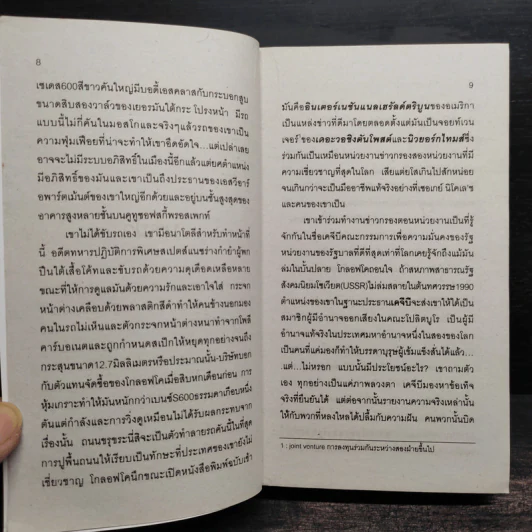 8
เซเดส600สีขาวคันใหญ่มีบอดี้เอสคลาสกับกระบอกสูบ
ขนาดสิบสองวาล์วของเยอรมันได้กระ โปรงหน้า มีรถ
แบบนี้ไม่กี่คันในมอสโกและจริงๆแล้วรถของเขาเป็น
ความฟุ่มเฟือยที่น่าจะทำให้เขาอึดอัดใจ...แต่เปล่าเลย
อาจจะไม่มีระบบอภิสิทธิ์ในเมืองนี้อีกแล้วแต่ยศตำแหน่ง
มีอภิสิทธิ์ของมันและเขาเป็นถึงประธานของเอสวีอาร์
อพาร์ตเม้นต์ของเขาใหญ่อีกด้วยและอยู่บนชั้นสูงสุดของ
อาคารสูงหลายชั้นบนคูทูซอฟสกี้พรอสเพกท์
เขาไม่ได้ขับรถเอง เขามีอนาโตลีสำหรับทำหน้าที่
นี้ อดีตทหารปฏิบัติการพิเศษสเปตส์แนซร่างกำยำผู้พก
ปืนใต้เสื้อโค้ทและขับรถด้วยความดุเดือดเหลือหลาย
ขณะที่ให้การดูแลมันด้วยความรักและเอาใจใส่ กระจก
หน้าต่างเคลือบด้วยพลาสติกสีดำทำให้คนข้างนอกมอง
คนในรถไม่เห็นและตัวกระจกหน้าต่างหนาทำจากโพลี
คาร์บอเนตและถูกกำหนดสเป็กให้หยุดทุกอย่างจนถึง
กระสุนขนาด12.7มิลลิเมตรหรือประมาณนั้น-บริษัทบอก
กับตัวแทนจัดซื้อของโกลอฟโคเมื่อสิบหกเดือนก่อน การ
หุ้มเกราะทำให้มันหนักกว่าเบนซ์S600ธรรมดาเกือบหนึ่ง
ตันแต่กำลังและการวิ่งดูเหมือนไม่ได้รับผลกระทบจาก
เรื่องนั้น ถนนขรุขระนี่สิจะเป็นตัวทำลายรถคันนี้ในที่สุด
การปูพื้นถนนให้เรียบเป็นทักษะที่ประเทศของเขายังไม่
เชี่ยวชาญ โกลอฟโคนึกขณะเปิดหนังสือพิมพ์ฉบับเช้า
9
มันคืออินเตอร์เนชันแนลเฮรัลด์ตริบูนของอเมริกา
เป็นแหล่งข่าวที่ดีมาโดยตลอดตั้งแต่มันเป็นจอยท์เวน
เจอร์¹ของเดอะวอชิงตันโพสต์และนิวยอร์กไทมส์ซึ่ง
ร่วมกันเป็นเหมือนหน่วยงานข่าวกรองสองหน่วยงานที่มี
ความเชี่ยวชาญที่สุดในโลก เสียแต่ยโสเกินไปสักหน่อย
จนเกินกว่าจะเป็นมืออาชีพแท้จริงอย่างที่เซอเกย์ นิโคเลช
และคนของเขาเป็น
เขาเข้าร่วมทำงานข่าวกรองตอนหน่วยงานเป็นที่รู้
จักกันในชื่อเคจีบีคณะกรรมการเพื่อความมั่นคงของรัฐ
หน่วยงานของรัฐบาลที่ดีที่สุดเท่าที่โลกเคยรู้จักถึงแม้มัน
ล่มในบั้นปลาย โกลอฟโคถอนใจ ถ้าสหภาพสาธารณรัฐ
สังคมนิยมโซเวียต(USSR)ไม่ล่มสลายในต้นทศวรรษ1990
ตำแหน่งของเขาในฐานะประธานเคจีบีจะส่งเขาให้ได้เป็น
สมาชิกผู้มีอำนาจออกเสียงในคณะโปลิตบูโร เป็นผู้มี
อำนาจแท้จริงในประเทศมหาอำนาจหนึ่งในสองของโลก
เป็นคนที่แค่มองก็ทำให้บรรดาบุรุษผู้เข้มแข็งสั่นได้แล้ว...
แต่...ไม่หรอก แบบนั้นมีประโยชน์อะไร? เขาถามตัว
เอง ทุกอย่างเป็นแค่ภาพลวงตา เคจีบีมองหาข้อเท็จ
จริงที่ยืนยันได้ แต่ต่อจากนั้นรายงานความจริงเหล่านั้น
ให้กับพวกที่หลงใหลได้ปลื้มกับความฝัน คนพวกนั้นบิด
1 : joint venture การลงทุนร่วมกันระหว่างสองฝ่ายขึ้นไป